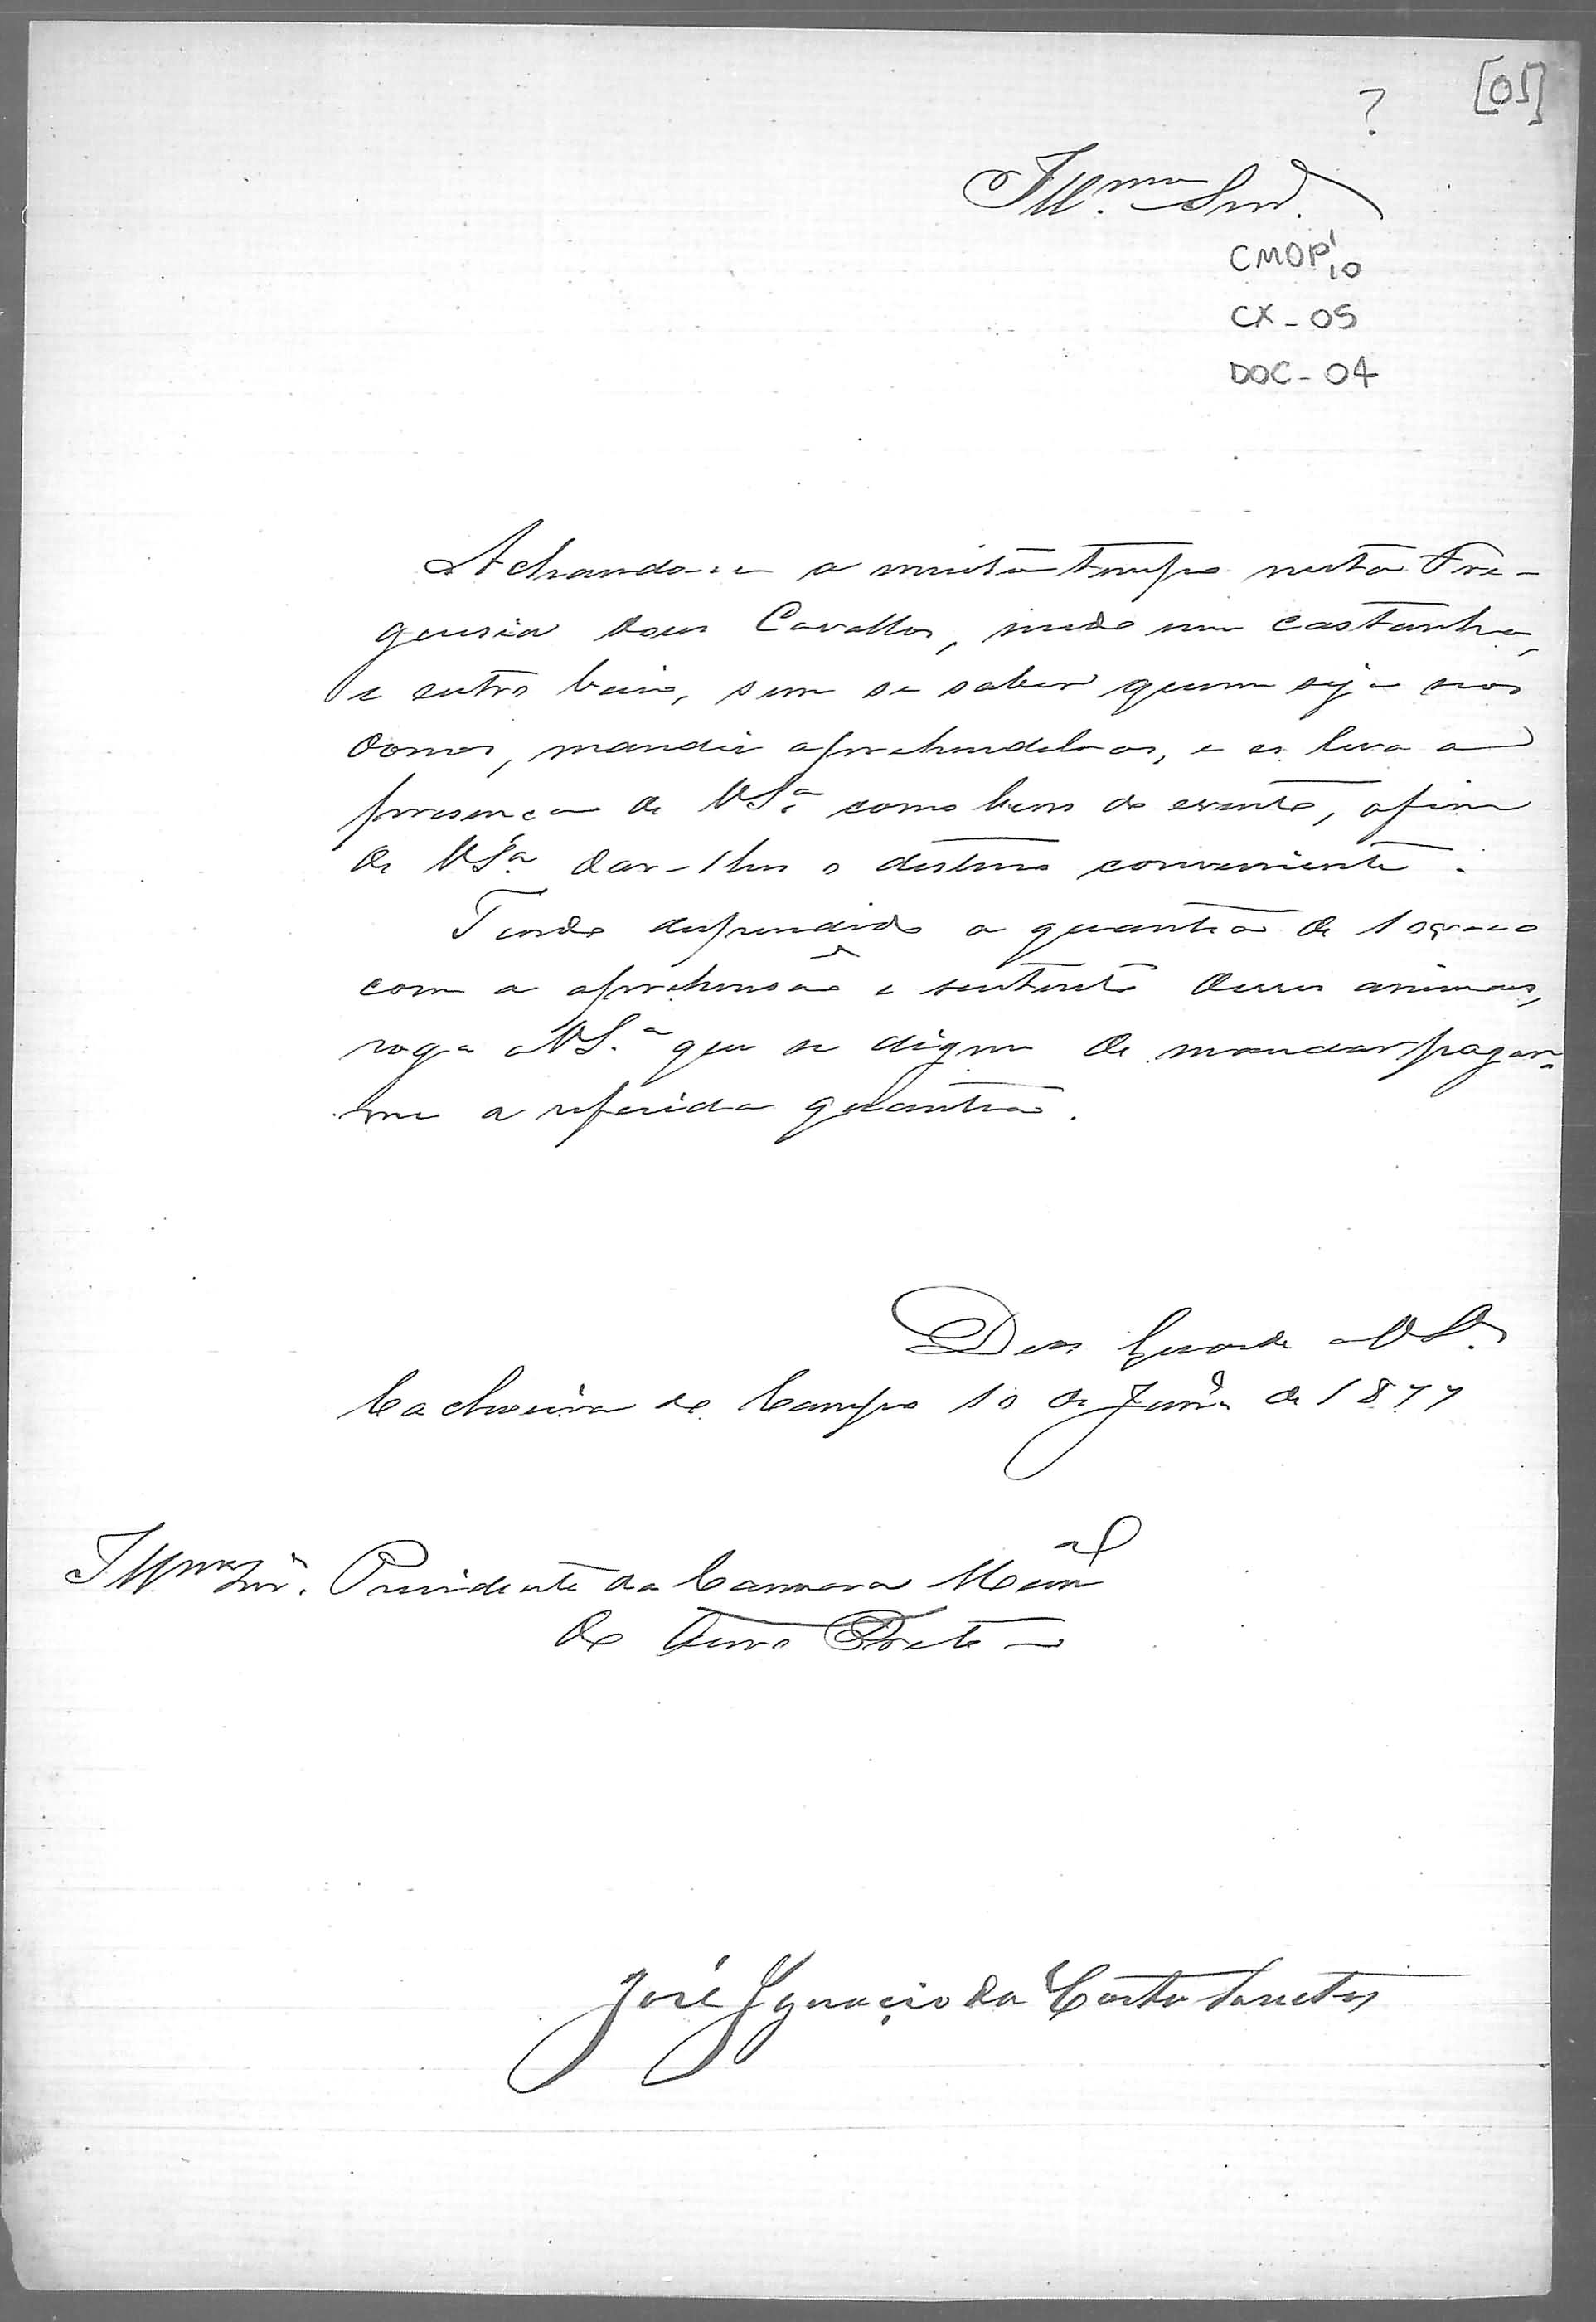 ?
[05]
Ill.mo Snr.
CMOP 10
CX - 05
DOC - 04
Achando-se a muito tempo nesta Fre-
guesia dous Cavallos, sendo um castanho,
e outro baio, sem se saber quem seja seos
donos, mandei aprehendel-os, e os levo a
presença de VS.ª como bens do evento, afim
de VS.ª dar-lhes o destino conveniente.
Tendo despendido a quantia de
com a aprehensão e sustento desses animaes,
rogo a VS.ª que se digne de mandar pagar-
me a referida quantia.
Deos Guarde a VS.ª
Cachoeira do Campo 10 de Janr.o de 1877
Ill.mo Snr. Presidente da Camara Mun.al
de Ouro Preto
José Ignacio da Costa Santos